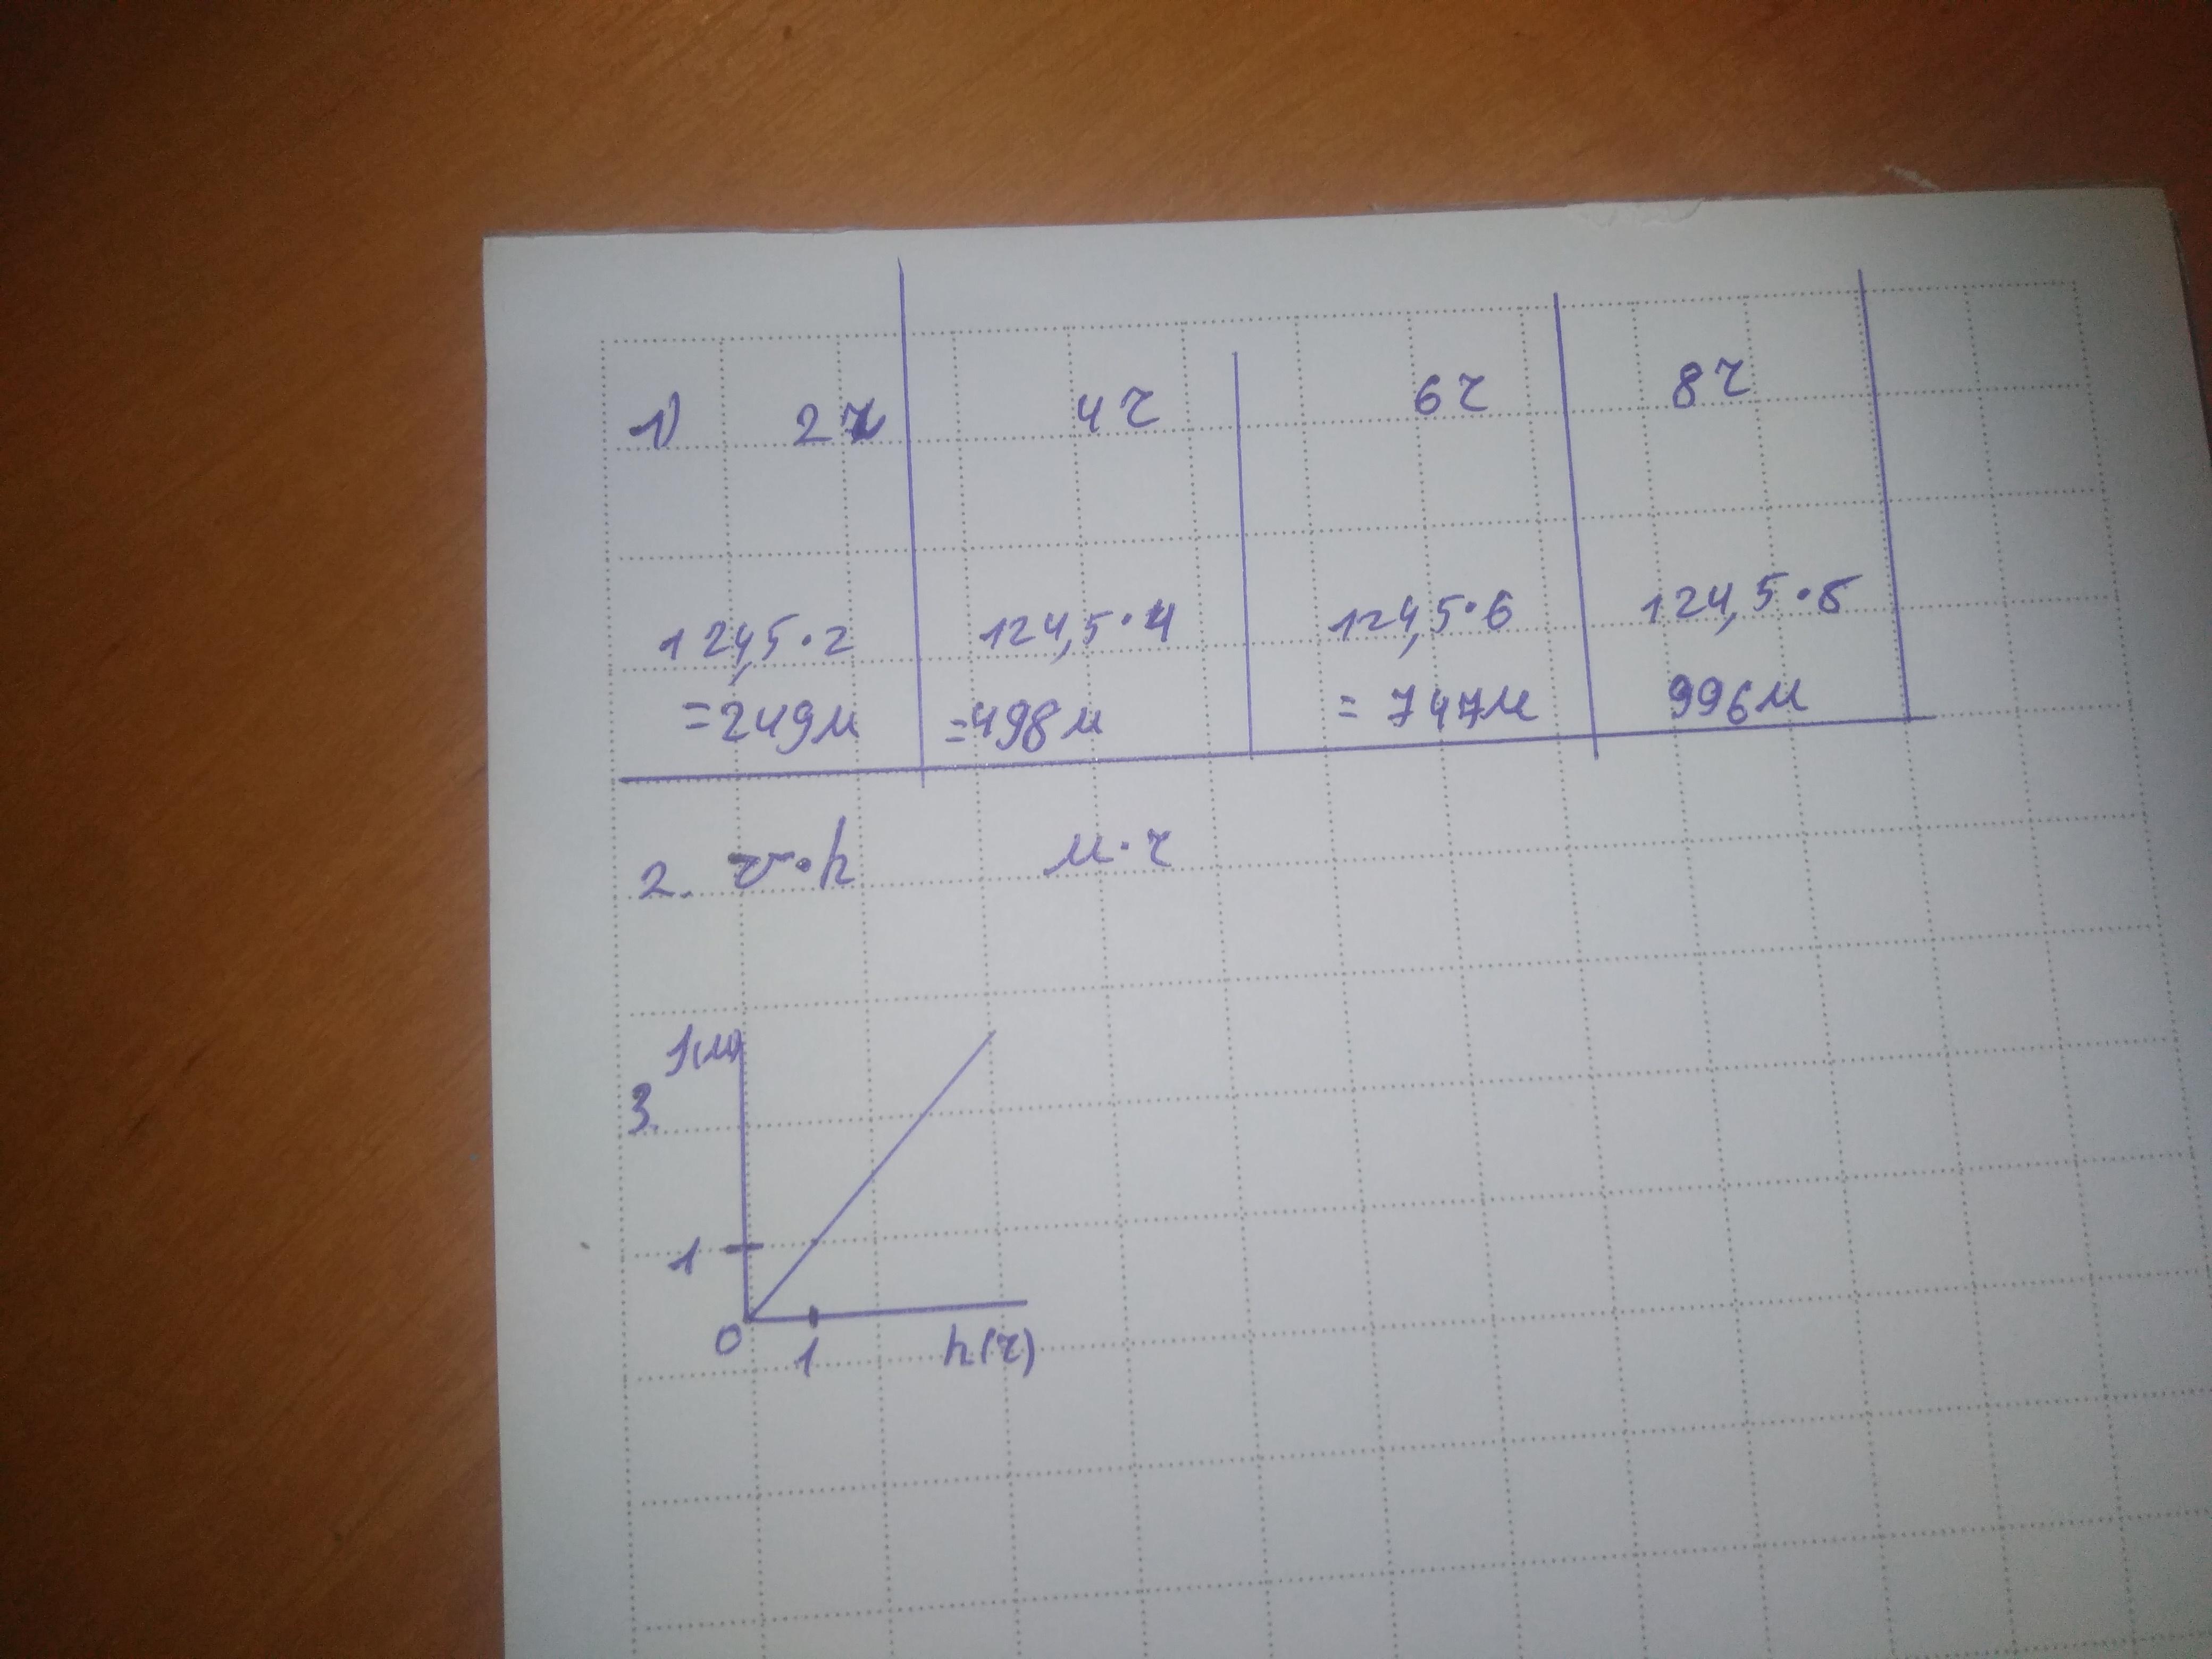 1) 2ч 4ч 6ч 8ч
124,5·2 124,5·4 124,5·6 124,5·8
=249м =498м =747м 996м
2. v·h м·ч
3. 
1
0 1 h(ч)